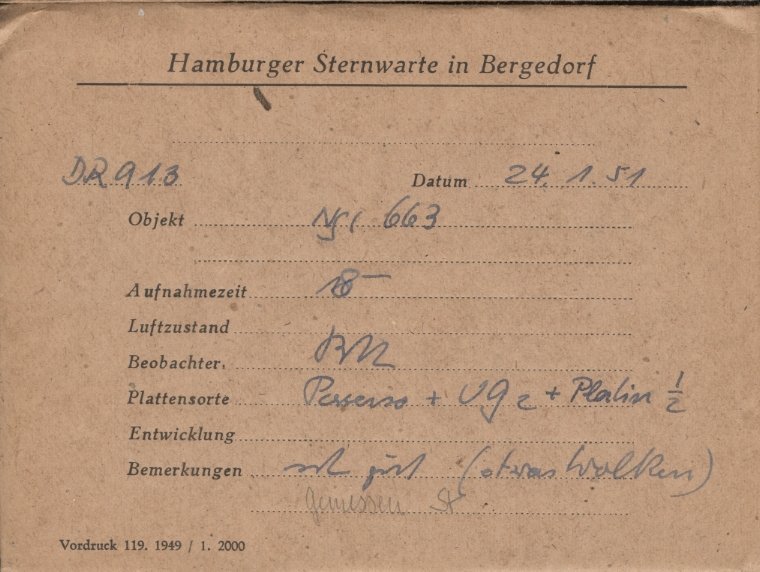 Hamburger Sternwarte in Bergedorf
DR 913 Datum 24. 1. 51
Objekt NGC 663
Aufnahmezeit
Luftzustand
Beobachter.
Plattensorte + UG2 + Platin ½
Entwicklung
Bemerkungen gut (etwas Wolken)
gemessen St
Vordruck 119. 1949 / 1. 2000